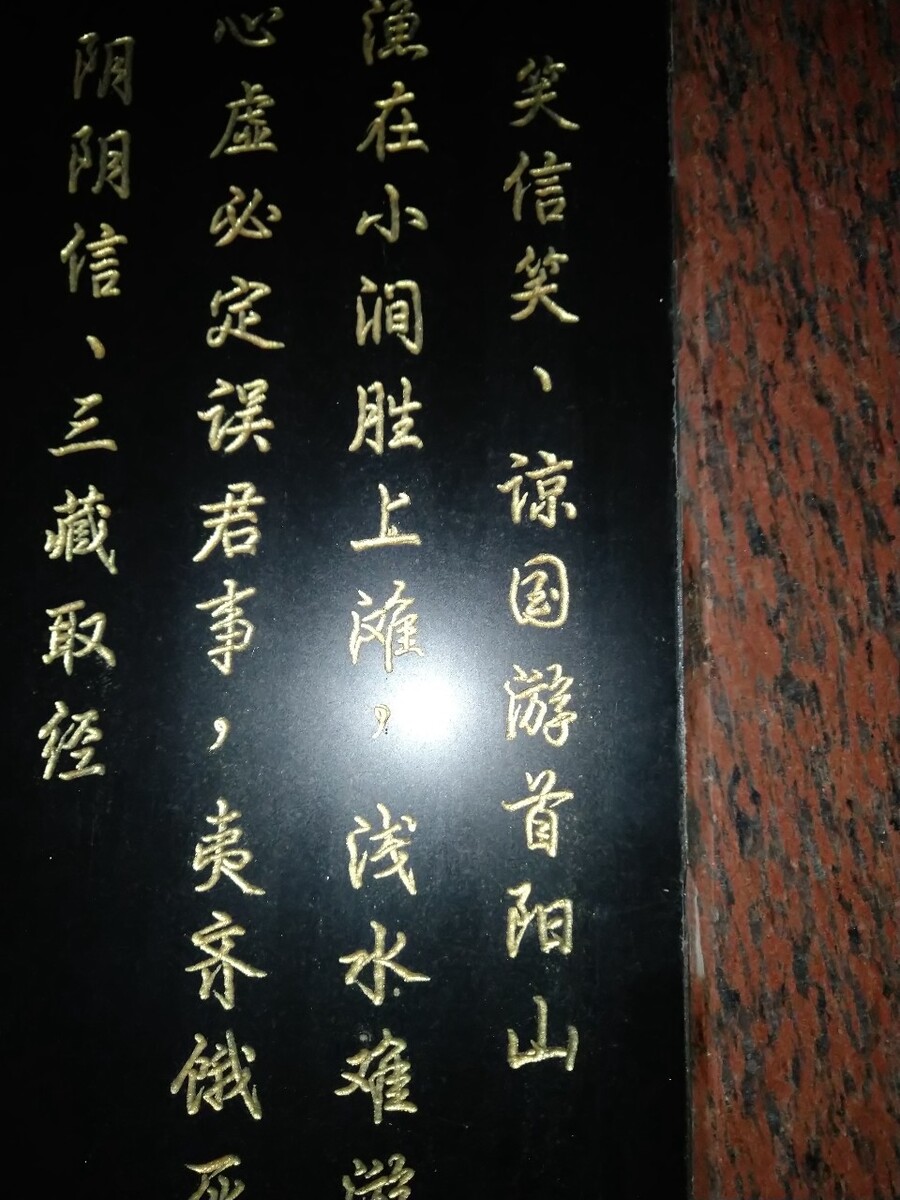 笑信笑、谅国游首阳山
渔在小涧胜上滩，浅水难游
心虚必定误君事，夷齐饿死
阴阴信、三藏取经